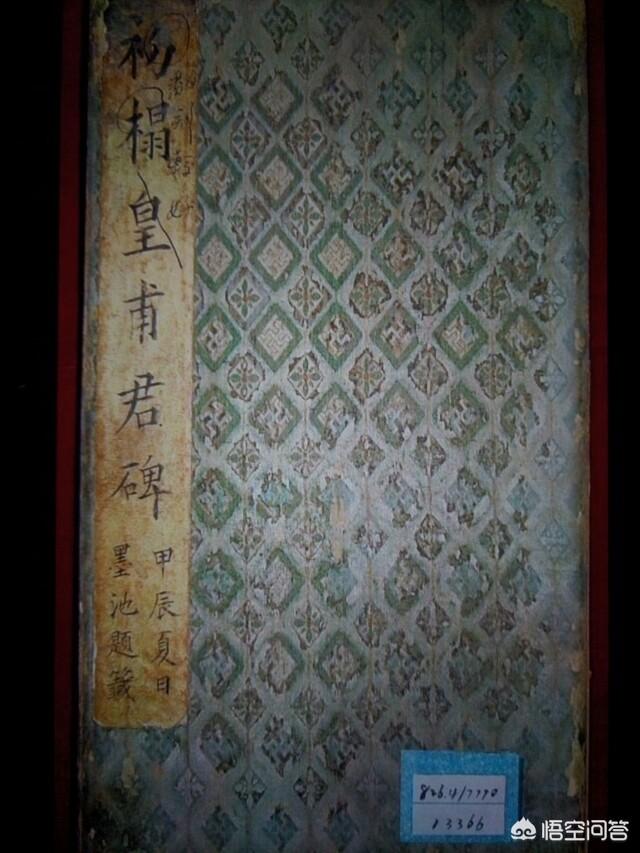 初榻皇甫君碑
甲辰夏日
墨池題籤
826.4/7770
13366
悟空问答